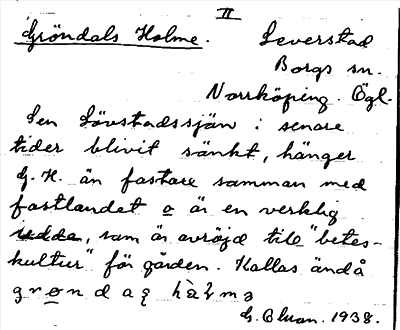 II
Gröndals Holme. Leverstad
Borgs sn.
Norrköping. Ögl.
Sen Lövstadssjön i senare
tider blivit sänkt, hänger
G. H. än fastare samman med
fastlandet o är en verklig
udde, som är avröjd till "betes-
kultur" för gården. Kallas ändå
grøndaʒ hàʒmə
G. Elwan. 1938.